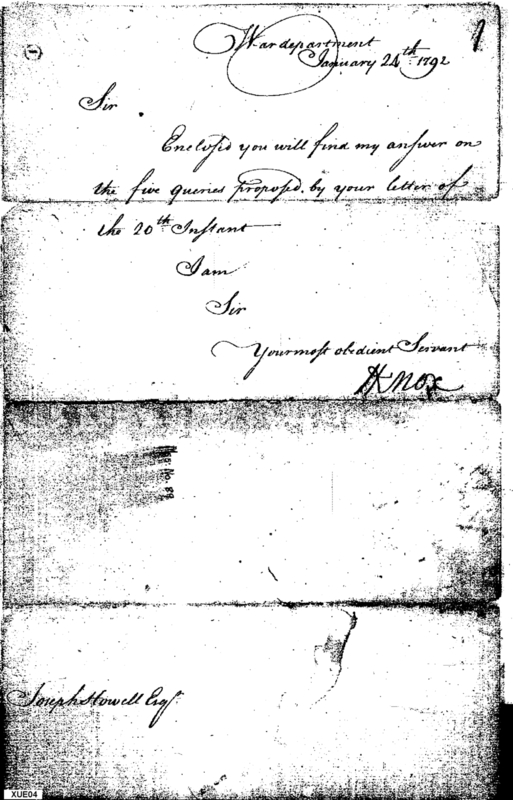 War department
January 24th 1792
Sir
Enclosed you will find my answer on
the five queries proposed by your letter of
the 20th Instant
I am
Sir
Your most obedient Servant
HKnox
Joseph Howell Esqr
XUE04